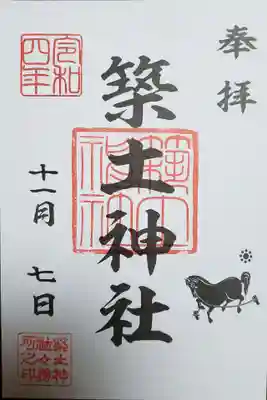 奉拝
築土神社
令和
四年
十一月 七日
築土神
社々務
所之印